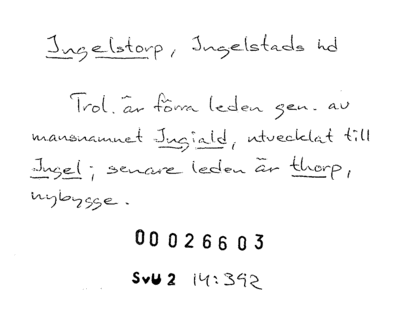 Ingelstorp, Ingelstads hd
Trol. är förra leden gen. av
mansnamnet Ingiald, utvecklat till
Ingel; senare leden är thorp,
nybygge.
00026603
SvU 2 14:392